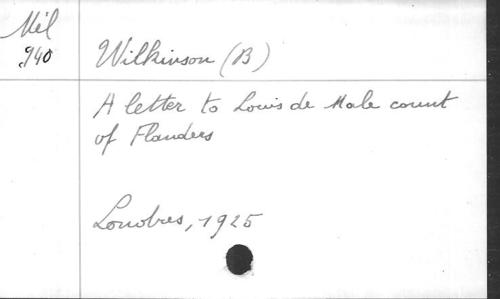 Mél
940
Wilkinson (B)
A letter to Louis de Male count
of Flanders
Londres, 1925